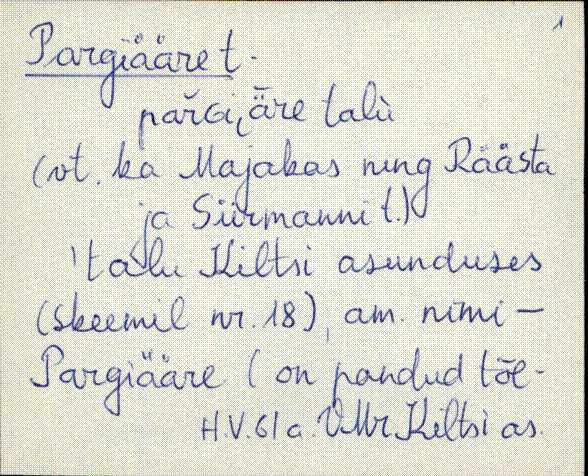 1
Pargiääre t.
pařGi‿äre talù
(vt. ka Majakas ning Räästa
ja Siirmanni t.)
'talu Kiltsi asunduses
(skeemil nr. 18), am. nimi —
Pargiääre (on pandud tõe-
H.V. 61 a. VMr Kiltsi as.